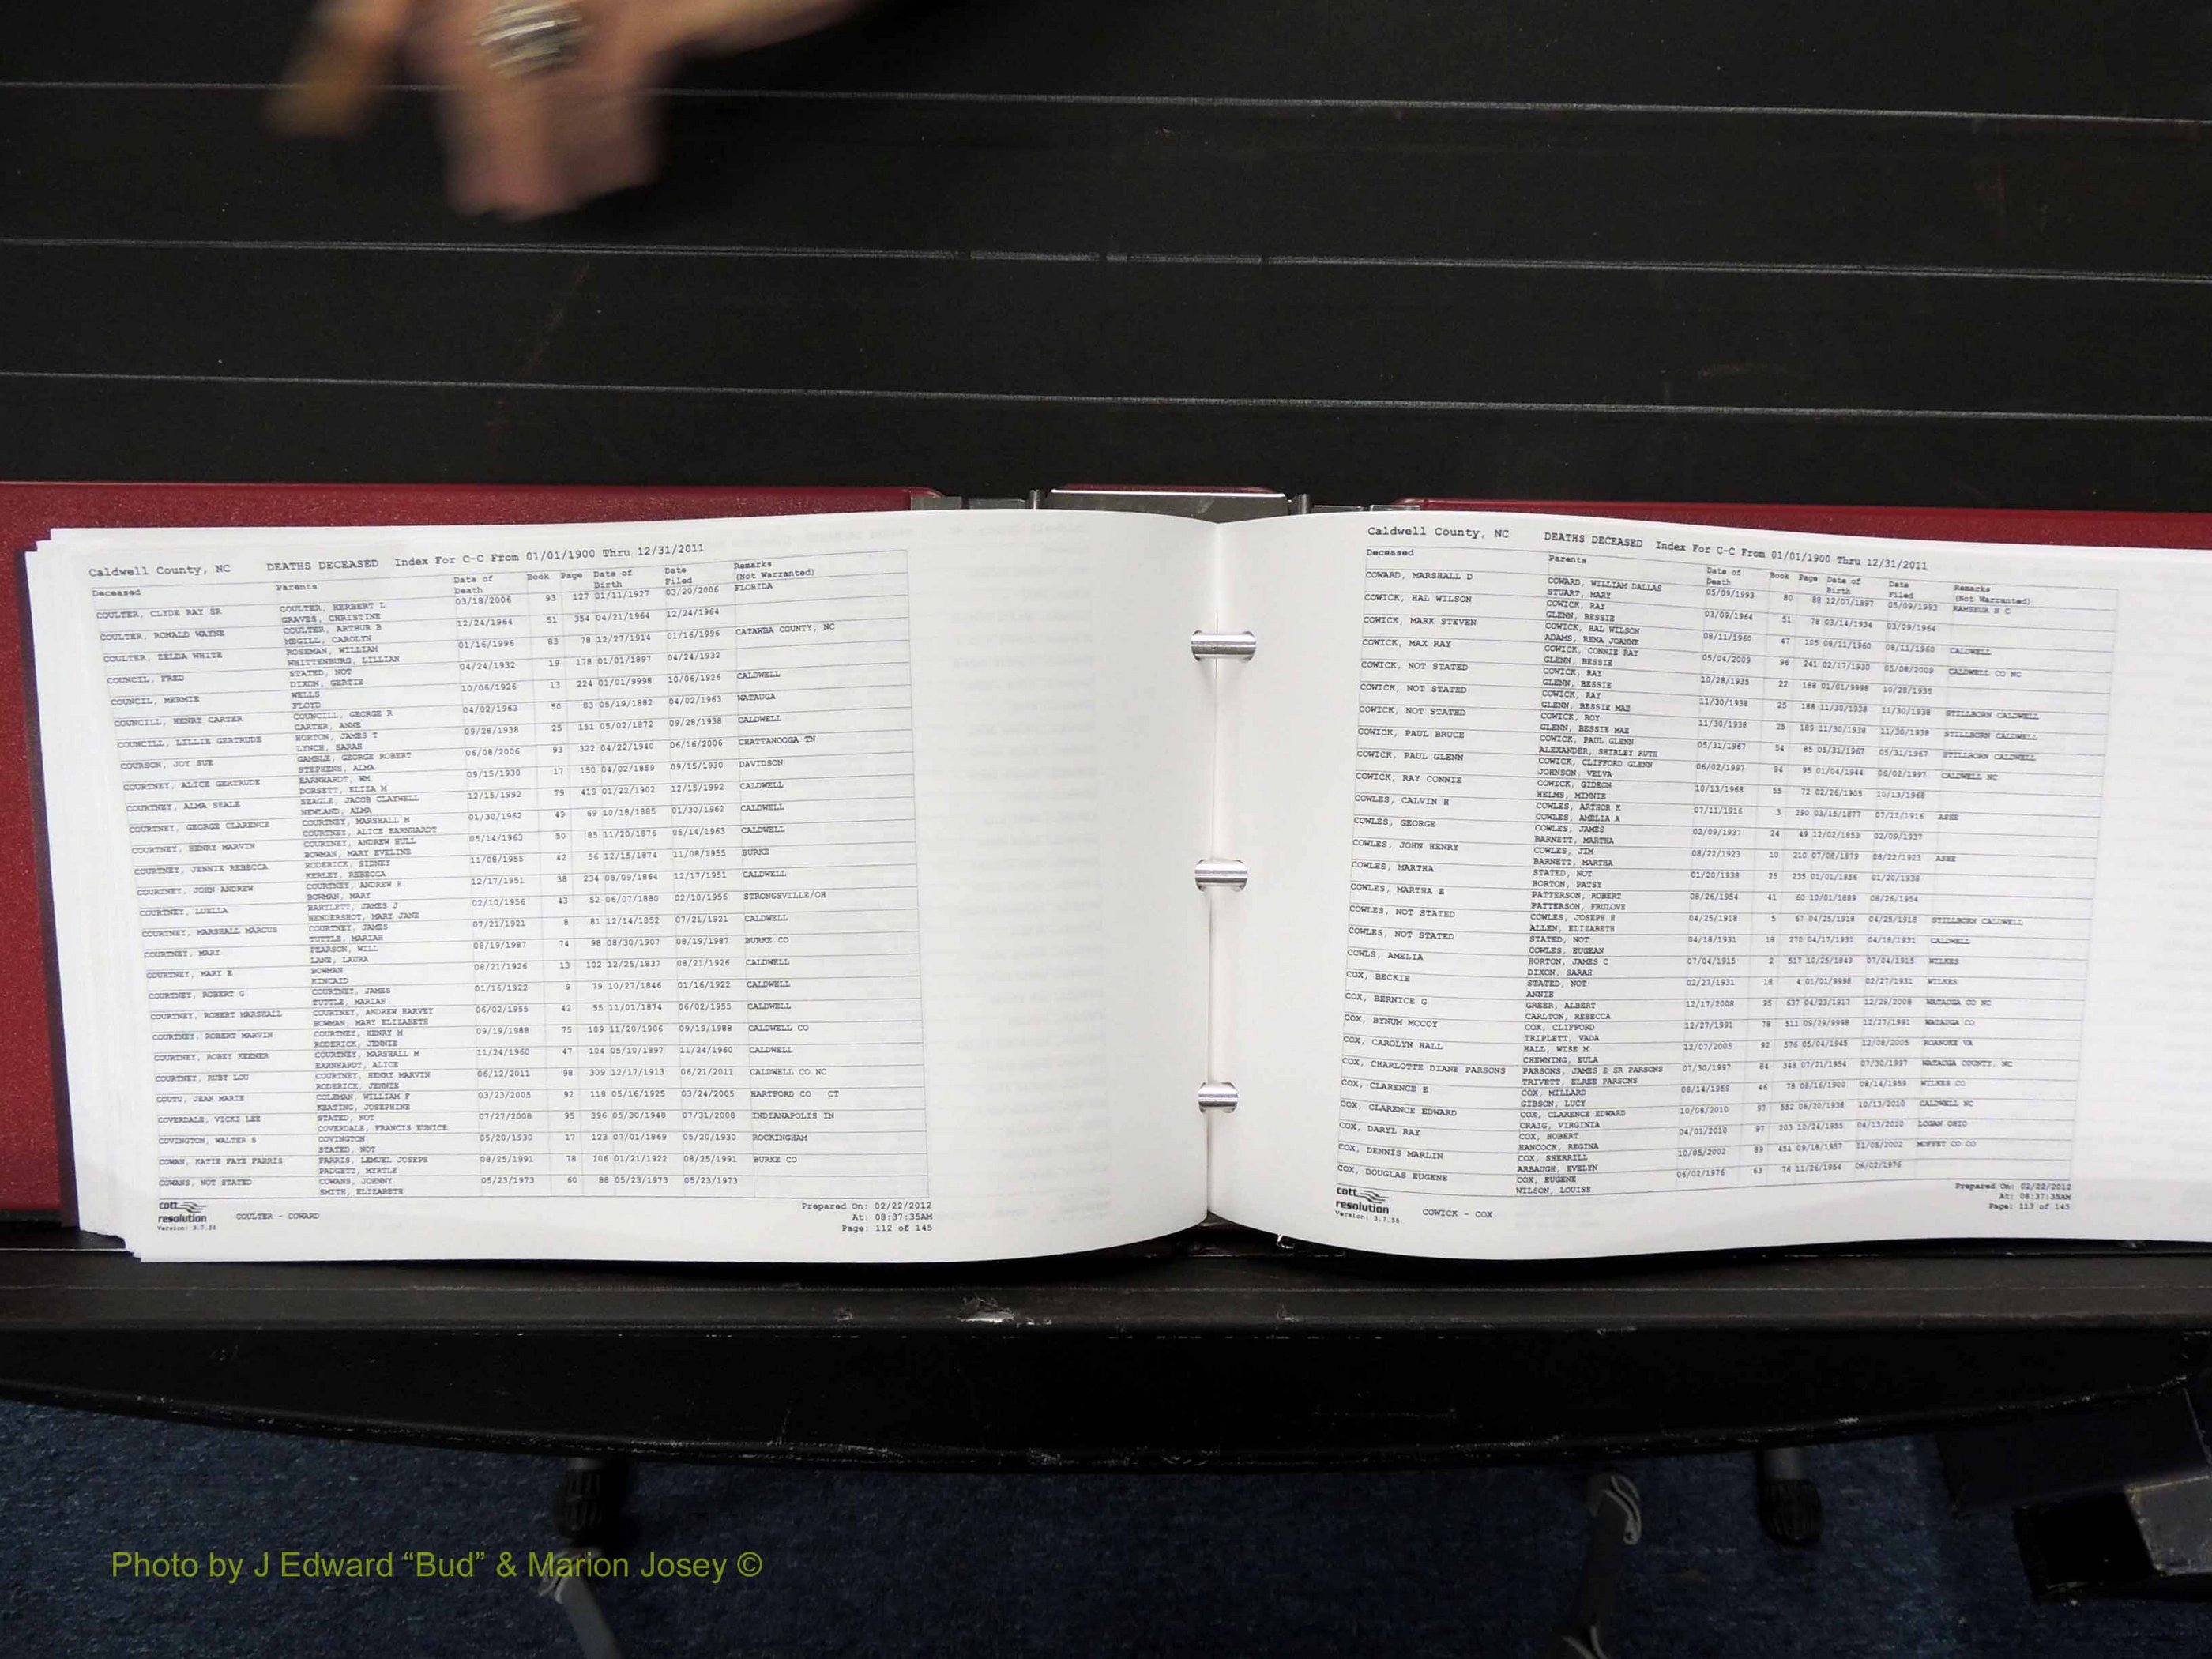 Caldwell County, NC DEATHS DECEASED Index For C-C From 01/01/1900 Thru 12/31/2011
Deceased Parents Date of Death Book Page Date of Birth Date Filed Remarks (Not Warranted)
COULTER, CLYDE RAY SR COULTER, HERBERT L 03/18/2006 93 127 01/11/1927 03/20/2006 FLORIDA
GRAVES, CHRISTINE
COULTER, RONALD WAYNE COULTER, ARTHUR B 12/24/1964 51 354 04/21/1964 12/24/1964
MEGILL, CAROLYN
COULTER, ZELDA WHITE ROSEMAN, WILLIAM 01/16/1996 83 78 12/27/1914 01/16/1996 CATAWBA COUNTY, NC
WHITTENBURG, LILLIAN
COUNCIL, FRED STATED, NOT 04/24/1932 19 178 01/01/1897 04/24/1932
DIXON, GERTIE
COUNCIL, MERMIE WELLS 10/06/1926 13 224 01/01/9998 10/06/1926 CALDWELL
FLOYD
COUNCILL, HENRY CARTER COUNCILL, GEORGE R 04/02/1963 50 83 05/19/1882 04/02/1963 WATAUGA
CARTER, ANNE
COUNCILL, LILLIE GERTRUDE HORTON, JAMES T 09/28/1938 25 151 05/02/1872 09/28/1938 CALDWELL
LYNCH, SARAH
COURSON, JOY SUE GAMBLE, GEORGE ROBERT 06/08/2006 93 322 04/22/1940 06/16/2006 CHATTANOOGA TN
STEPHENS, ALMA
COURTNEY, ALICE GERTRUDE EARNHARDT, WM 09/15/1930 17 150 04/02/1859 09/15/1930 DAVIDSON
DORSETT, ELIZA M
COURTNEY, ALMA SEALE SEAGLE, JACOB CLAYWELL 12/15/1992 79 419 01/22/1902 12/15/1992 CALDWELL
NEWLAND, ALMA
COURTNEY, GEORGE CLARENCE COURTNEY, MARSHALL M 01/30/1962 49 69 10/18/1885 01/30/1962 CALDWELL
COURTNEY, ALICE EARNHARDT
COURTNEY, HENRY MARVIN COURTNEY, ANDREW HULL 05/14/1963 50 85 11/20/1876 05/14/1963 CALDWELL
BOWMAN, MARY EVELINE
COURTNEY, JENNIE REBECCA RODERICK, SIDNEY 11/08/1955 42 56 12/15/1874 11/08/1955 BURKE
KERLEY, REBECCA
COURTNEY, JOHN ANDREW COURTNEY, ANDREW H 12/17/1951 38 234 08/09/1864 12/17/1951 CALDWELL
BOWMAN, MARY
COURTNEY, LUELLA BARTLETT, JAMES J 02/10/1956 43 52 06/07/1880 02/10/1956 STRONGSVILLE/OH
HENDERSHOT, MARY JANE
COURTNEY, MARSHALL MARCUS COURTNEY, JAMES 07/21/1921 8 81 12/14/1852 07/21/1921 CALDWELL
TUTTLE, MARIAH
COURTNEY, MARY PEARSON, WILL 08/19/1987 74 98 08/30/1907 08/19/1987 BURKE CO
LANE, LAURA
COURTNEY, MARY E BOWMAN 08/21/1926 13 102 12/25/1837 08/21/1926 CALDWELL
KINCAID
COURTNEY, ROBERT G COURTNEY, JAMES 01/16/1922 9 79 10/27/1846 01/16/1922 CALDWELL
TUTTLE, MARIAH
COURTNEY, ROBERT MARSHALL COURTNEY, ANDREW HARVEY 06/02/1955 42 55 11/01/1874 06/02/1955 CALDWELL
BOWMAN, MARY ELIZABETH
COURTNEY, ROBERT MARVIN COURTNEY, HENRY M 09/19/1988 75 109 11/20/1906 09/19/1988 CALDWELL CO
RODERICK, JENNIE
COURTNEY, ROBEY KEENER COURTNEY, MARSHALL M 11/24/1960 47 104 05/10/1897 11/24/1960 CALDWELL
EARNHARDT, ALICE
COURTNEY, RUBY LOU COURTNEY, HENRY MARVIN 06/12/2011 98 309 12/17/1913 06/21/2011 CALDWELL CO NC
RODERICK, JENNIE
COUTU, JEAN MARIE COLEMAN, WILLIAM F 03/23/2005 92 118 05/16/1925 03/24/2005 HARTFORD CO CT
KEATING, JOSEPHINE
COVERDALE, VICKI LEE STATED, NOT 07/27/2008 95 396 05/30/1948 07/31/2008 INDIANAPOLIS IN
COVERDALE, FRANCIS EUNICE
COVINGTON, WALTER S COVINGTON 05/20/1930 17 123 07/01/1869 05/20/1930 ROCKINGHAM
STATED, NOT
COWAN, KATIE FAYE FARRIS FARRIS, LEMUEL JOSEPH 08/25/1991 78 106 01/21/1922 08/25/1991 BURKE CO
PADGETT, MYRTLE
COWANS, NOT STATED COWANS, JOHNNY 05/23/1973 60 88 05/23/1973 05/23/1973
SMITH, ELIZABETH
cott resolution
Version: 3.7.55
COULTER - COWARD
Prepared On: 02/22/2012
At: 08:37:35AM
Page: 112 of 145
Caldwell County, NC DEATHS DECEASED Index For C-C From 01/01/1900 Thru 12/31/2011
Deceased Parents Date of Death Book Page Date of Birth Date Filed Remarks (Not Warranted)
COWARD, MARSHALL D COWARD, WILLIAM DALLAS 05/09/1993 80 88 12/07/1897 05/09/1993 RAMSEUR N C
STUART, MARY
COWICK, HAL WILSON COWICK, RAY 03/09/1964 51 78 03/14/1934 03/09/1964
GLENN, BESSIE
COWICK, MARK STEVEN COWICK, HAL WILSON 08/11/1960 47 105 08/11/1960 08/11/1960 CALDWELL
ADAMS, RENA JOANNE
COWICK, MAX RAY COWICK, CONNIE RAY 05/04/2009 96 241 02/17/1930 05/08/2009 CALDWELL CO NC
GLENN, BESSIE
COWICK, NOT STATED COWICK, RAY 10/28/1935 22 188 01/01/9998 10/28/1935
GLENN, BESSIE
COWICK, NOT STATED COWICK, RAY 11/30/1938 25 188 11/30/1938 11/30/1938 STILLBORN CALDWELL
GLENN, BESSIE MAE
COWICK, NOT STATED COWICK, ROY 11/30/1938 25 189 11/30/1938 11/30/1938 STILLBORN CALDWELL
GLENN, BESSIE MAE
COWICK, PAUL BRUCE COWICK, PAUL GLENN 05/31/1967 54 85 05/31/1967 05/31/1967 STILLBORN CALDWELL
ALEXANDER, SHIRLEY RUTH
COWICK, PAUL GLENN COWICK, CLIFFORD GLENN 06/02/1997 84 95 01/04/1944 06/02/1997 CALDWELL NC
JOHNSON, VELVA
COWICK, RAY CONNIE COWICK, GIDEON 10/13/1968 55 72 02/26/1905 10/13/1968
HELMS, MINNIE
COWLES, CALVIN H COWLES, ARTHOR K 07/11/1916 3 290 03/15/1877 07/11/1916 ASHE
COWLES, AMELIA A
COWLES, GEORGE COWLES, JAMES 02/09/1937 24 49 12/02/1853 02/09/1937
BARNETT, MARTHA
COWLES, JOHN HENRY COWLES, JIM 08/22/1923 10 210 07/08/1879 08/22/1923 ASHE
BARNETT, MARTHA
COWLES, MARTHA STATED, NOT 01/20/1938 25 235 01/01/1856 01/20/1938
HORTON, PATSY
COWLES, MARTHA E PATTERSON, ROBERT 08/26/1954 41 60 10/01/1889 08/26/1954
PATTERSON, FRULOVE
COWLES, NOT STATED COWLES, JOSEPH H 04/25/1918 5 67 04/25/1918 04/25/1918 STILLBORN CALDWELL
ALLEN, ELIZABETH
COWLES, NOT STATED STATED, NOT 04/18/1931 18 270 04/17/1931 04/18/1931 CALDWELL
COWLES, EUGEAN
COWLS, AMELIA HORTON, JAMES C 07/04/1915 2 517 10/25/1849 07/04/1915 WILKES
DIXON, SARAH
COX, BECKIE STATED, NOT 02/27/1931 18 4 01/01/9998 02/27/1931 WILKES
ANNIE
COX, BERNICE G GREER, ALBERT 12/17/2008 95 637 04/23/1917 12/29/2008 WATAUGA CO NC
CARLTON, REBECCA
COX, BYNUM MCCOY COX, CLIFFORD 12/27/1991 78 511 09/29/9998 12/27/1991 WATAUGA CO
TRIPLETT, VADA
COX, CAROLYN HALL HALL, WISE M 12/07/2005 92 576 05/04/1945 12/08/2005 ROANOKE VA
CHEWNING, EULA
COX, CHARLOTTE DIANE PARSONS PARSONS, JAMES E SR PARSONS 07/30/1997 84 348 07/21/1954 07/30/1997 WATAUGA COUNTY, NC
TRIVETT, ELREE PARSONS
COX, CLARENCE E COX, MILLARD 08/14/1959 46 78 09/16/1900 08/14/1959 WILKES CO
GIBSON, LUCY
COX, CLARENCE EDWARD COX, CLARENCE EDWARD 10/08/2010 97 552 08/20/1938 10/13/2010 CALDWELL NC
CRAIG, VIRGINIA
COX, DARYL RAY COX, HOBERT 04/01/2010 97 203 10/24/1955 04/13/2010 LOGAN OHIO
HANCOCK, REGINA
COX, DENNIS MARLIN COX, SHERRILL 10/05/2002 89 451 09/18/1957 11/05/2002 MOFFET CO CO
ARBAUGH, EVELYN
COX, DOUGLAS EUGENE COX, EUGENE 06/02/1976 63 76 11/26/1954 06/02/1976
WILSON, LOUISE
cott resolution
Version: 3.7.55
COWICK - COX
Prepared On: 02/22/2012
At: 08:37:35AM
Page: 113 of 145
Photo by J Edward “Bud” & Marion Josey ©